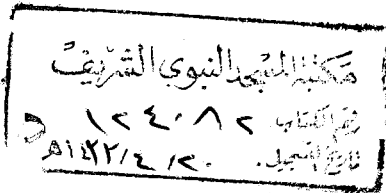 مكتبة المسجد النبوي الشريف
رقم الكتاب: ١٢٤٠٨٢
تاريخ التسجيل: ٢٠/٤/١٤٢٢هـ